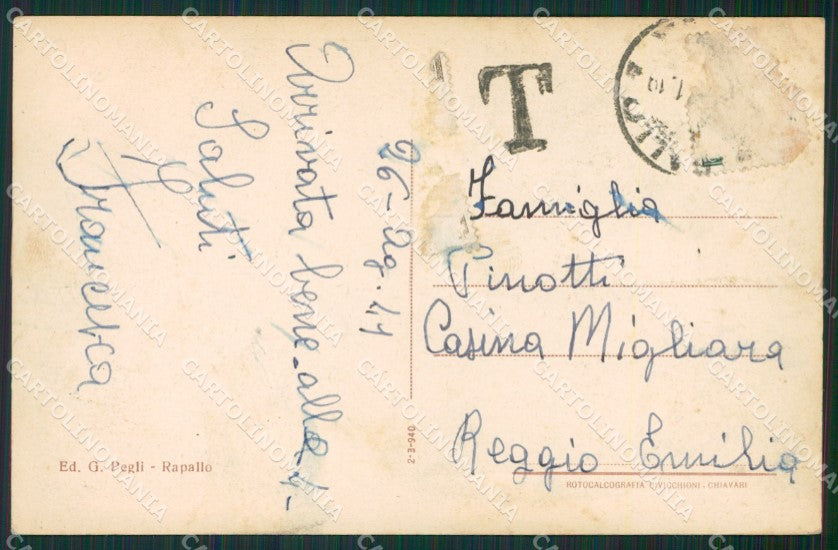 26-Ag. 41
Arrivata bene - alle 4-
Saluti
Francesca
T
Famiglia
Pinotti
Casina Migliara
Reggio Emilia
Ed. G. Pegli - Rapallo
2-3-940
ROTOCALCOGRAFIA CIVICCHIONI - CHIAVARI
CARTOLINOMANIA